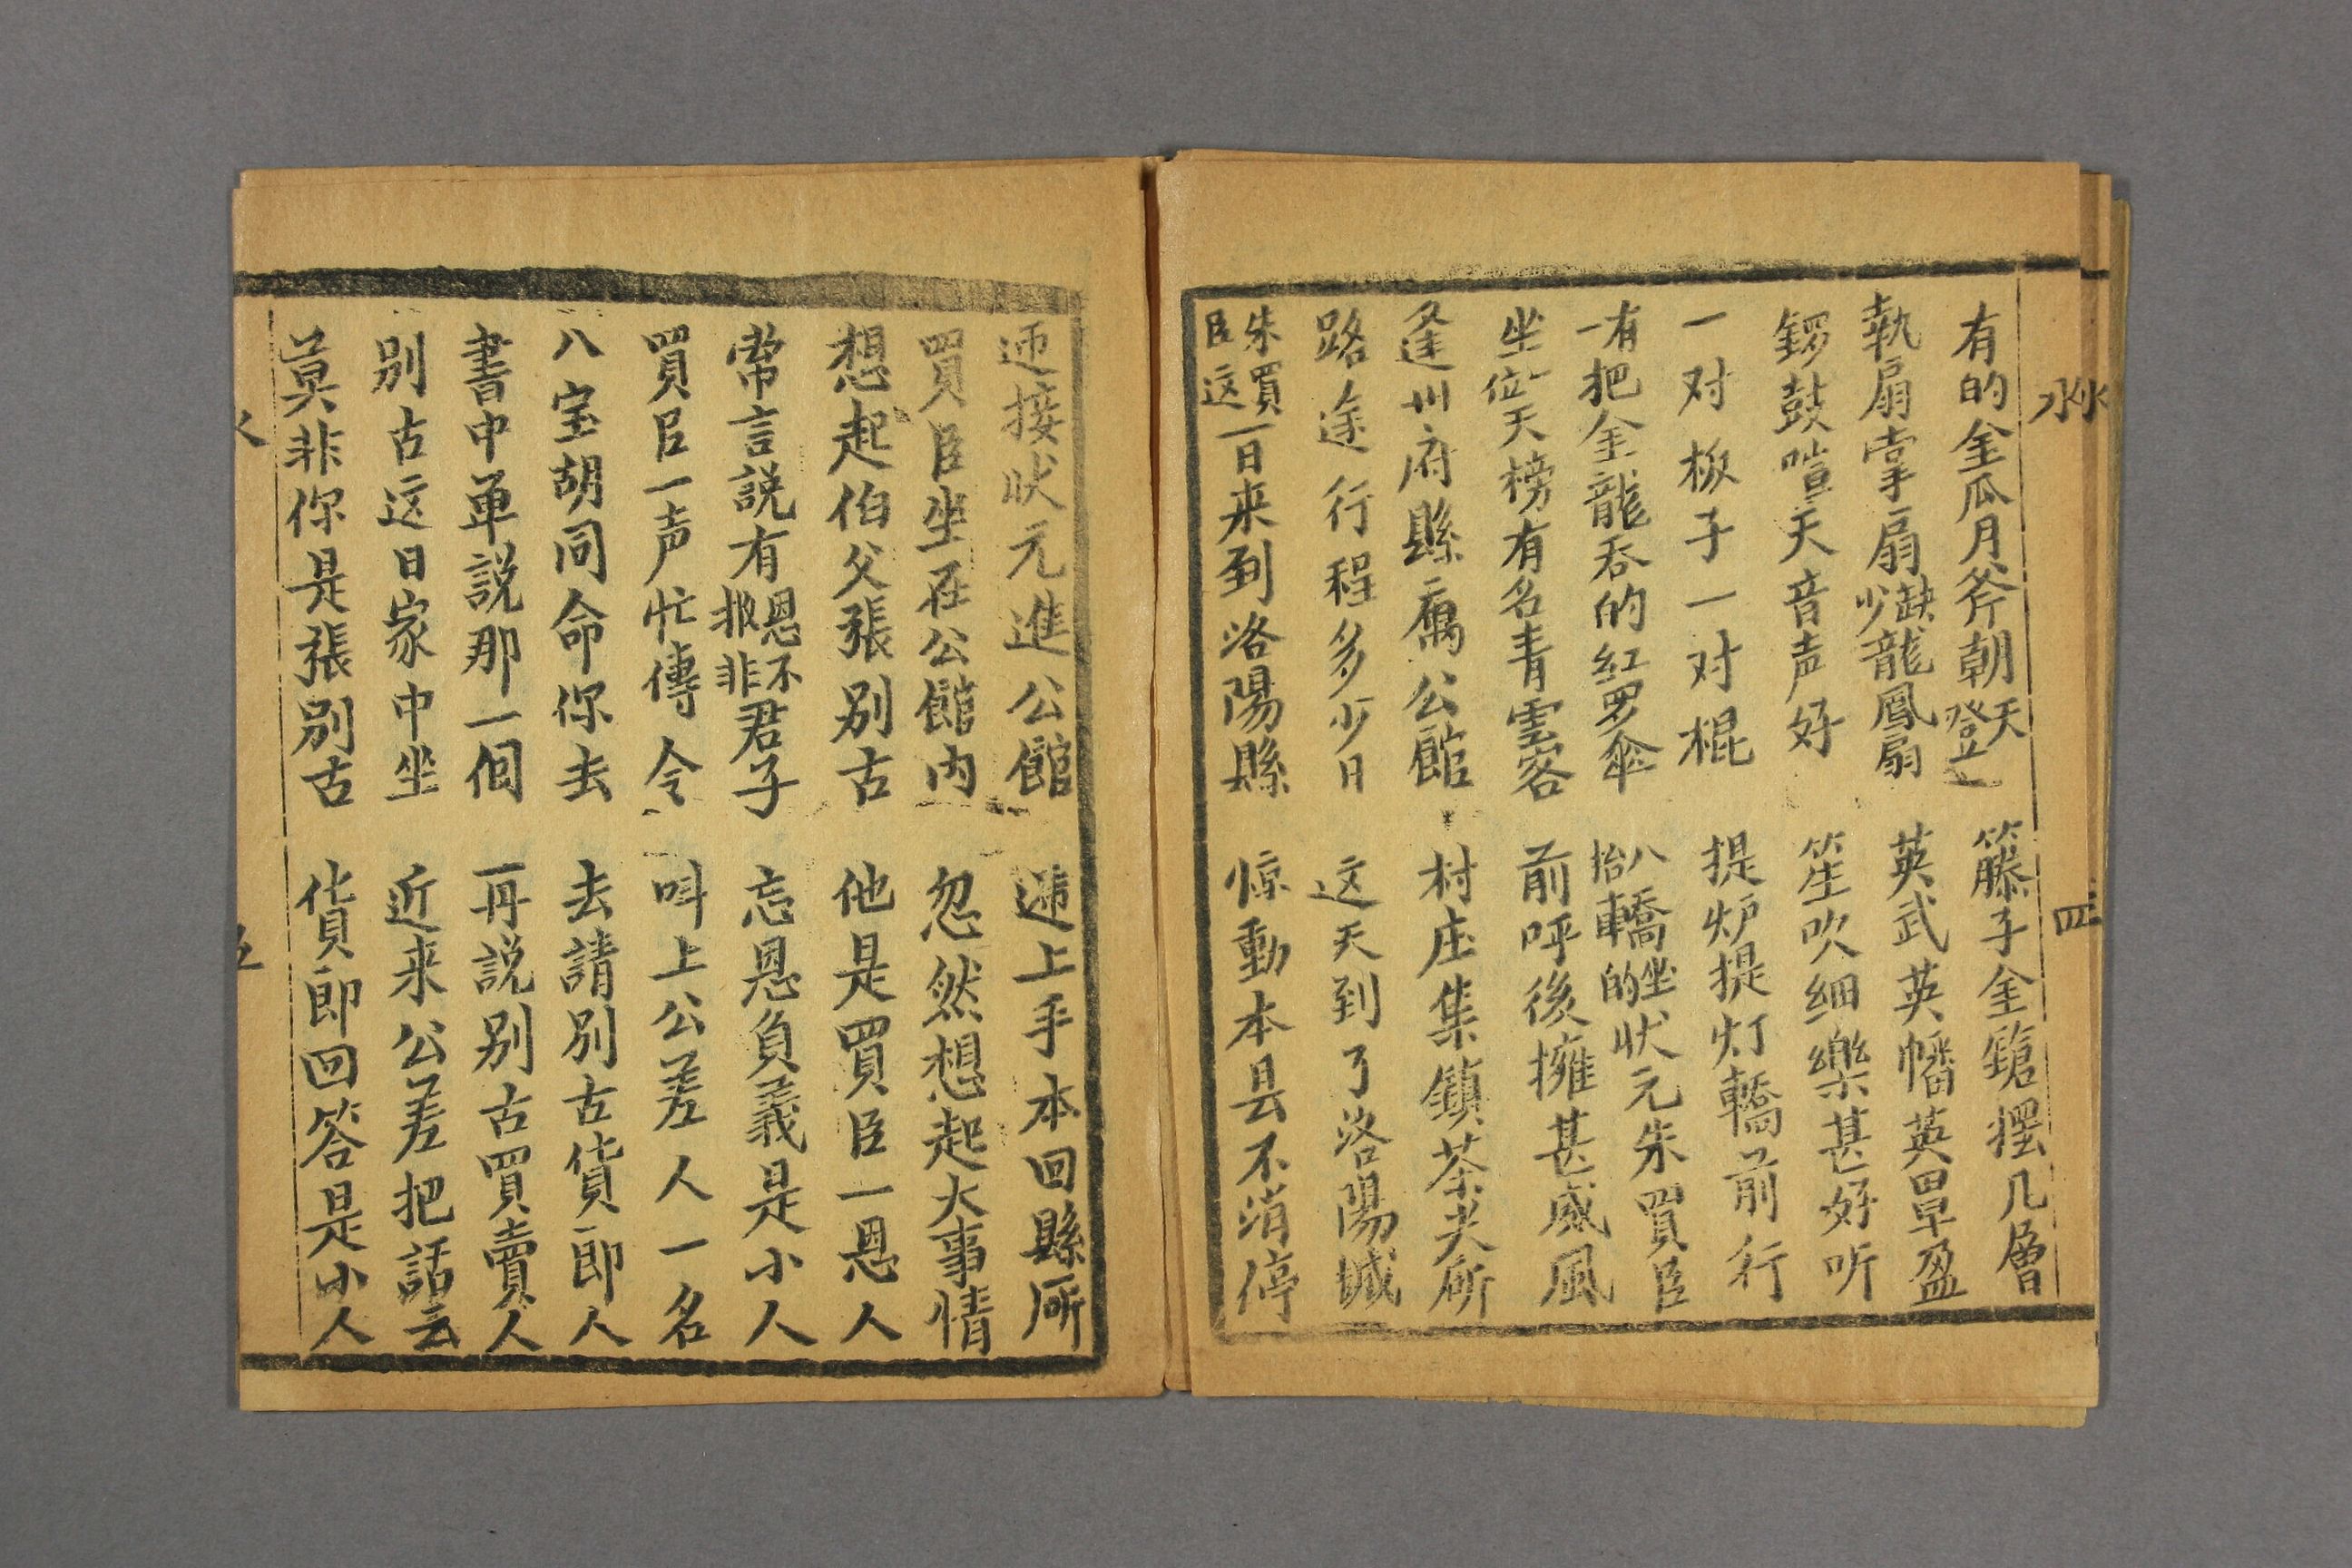 水 四
有的金瓜月斧朝天登 籐子金鎗摆几層
執扇掌扇缺少龍鳳扇 英武英幡英罩盈
鑼鼓喧天音声好 笙吹细樂甚好听
一对板子一对棍 提炉提灯轎前行
有一把金龍吞的红罗傘 八抬轎坐的状元朱買臣
坐位天榜有名青雲客 前呼後擁甚威风
逢州府縣寓公館 村庄集鎮茶尖所
路途行程多少日 这天到了洛陽城
朱買臣这一日来到洛陽縣 惊動本县不消停
迊接状元進公館 递上手本回縣所
買臣坐在公館内 忽然想起大事情
想起伯父張别古 他是買臣一恩人
常言説有恩不报非君子 忘恩負義是小人
買臣一声忙傳令 呌上公差人一名
八宝胡同命你去 去請别古貨郎人
書中单説那一個 再説别古買賣人
别古这日家中坐 近来公差把話云
莫非你是張别古 貨郎回答是小人
五